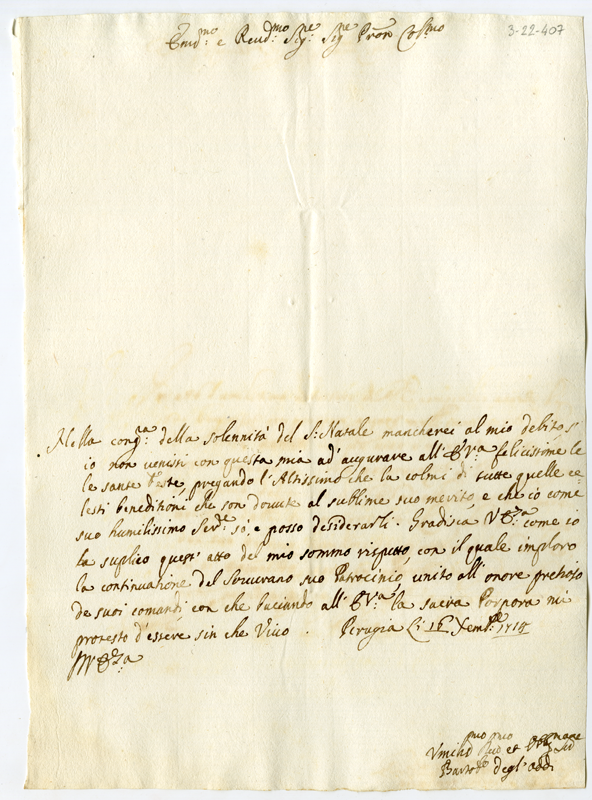 Em̃o e Reud.mo Sig.re Sig.re Pron Col.mo
3-22-407
Nella cong.ra della solennità del S: Natale mancherei al mio debito, s'
io non uenissi con questa mia ad' augurare all' E.V.a felicissime le
le sante feste, pregando l'Altissimo che la colmi di tutte quelle ce-
lesti beneditioni che son douute al sublime suo merito, e che io come
suo humilissimo Ser.re sò, e posso desiderarli. Gradisca V.E.za come io
la suplico quest' atto del mio sommo rispetto, con il quale imploro
la continuatione del Souurano suo Patrocinio unito all' onore pretioso
de suoi comandi con che baciando all' E.V.a la sacra Porpora mi
protesto d'essere sin che Viuo. Perugia li 16 Xemb.re 1714
V.E.za
Vmiliss.mo
degl' Oddi